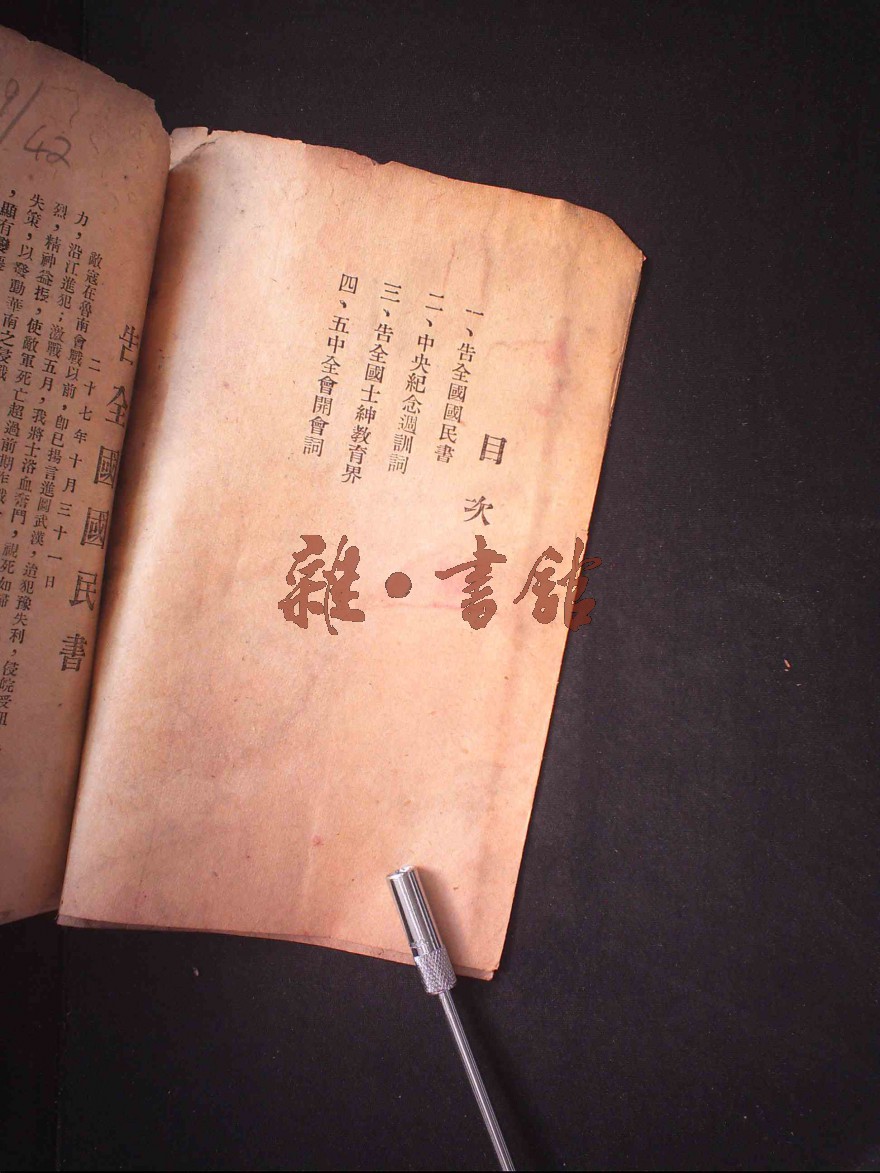 目次
一、告全國國民書
二、中央紀念週訓詞
三、告全國士紳教育界
四、五中全會開會詞
告全國國民書
二十七年十月三十一日
敵寇在魯南會戰以前，即已揚言進圖武漢，迨犯豫失利，侵皖受阻
力，沿江進犯；激戰五月，我將士浴血奮鬥，視死如歸
烈，精神益振，使敵軍死亡超過前期作戰
失策，以發動華南之侵戰
，顯有變
9/42
雜·書館